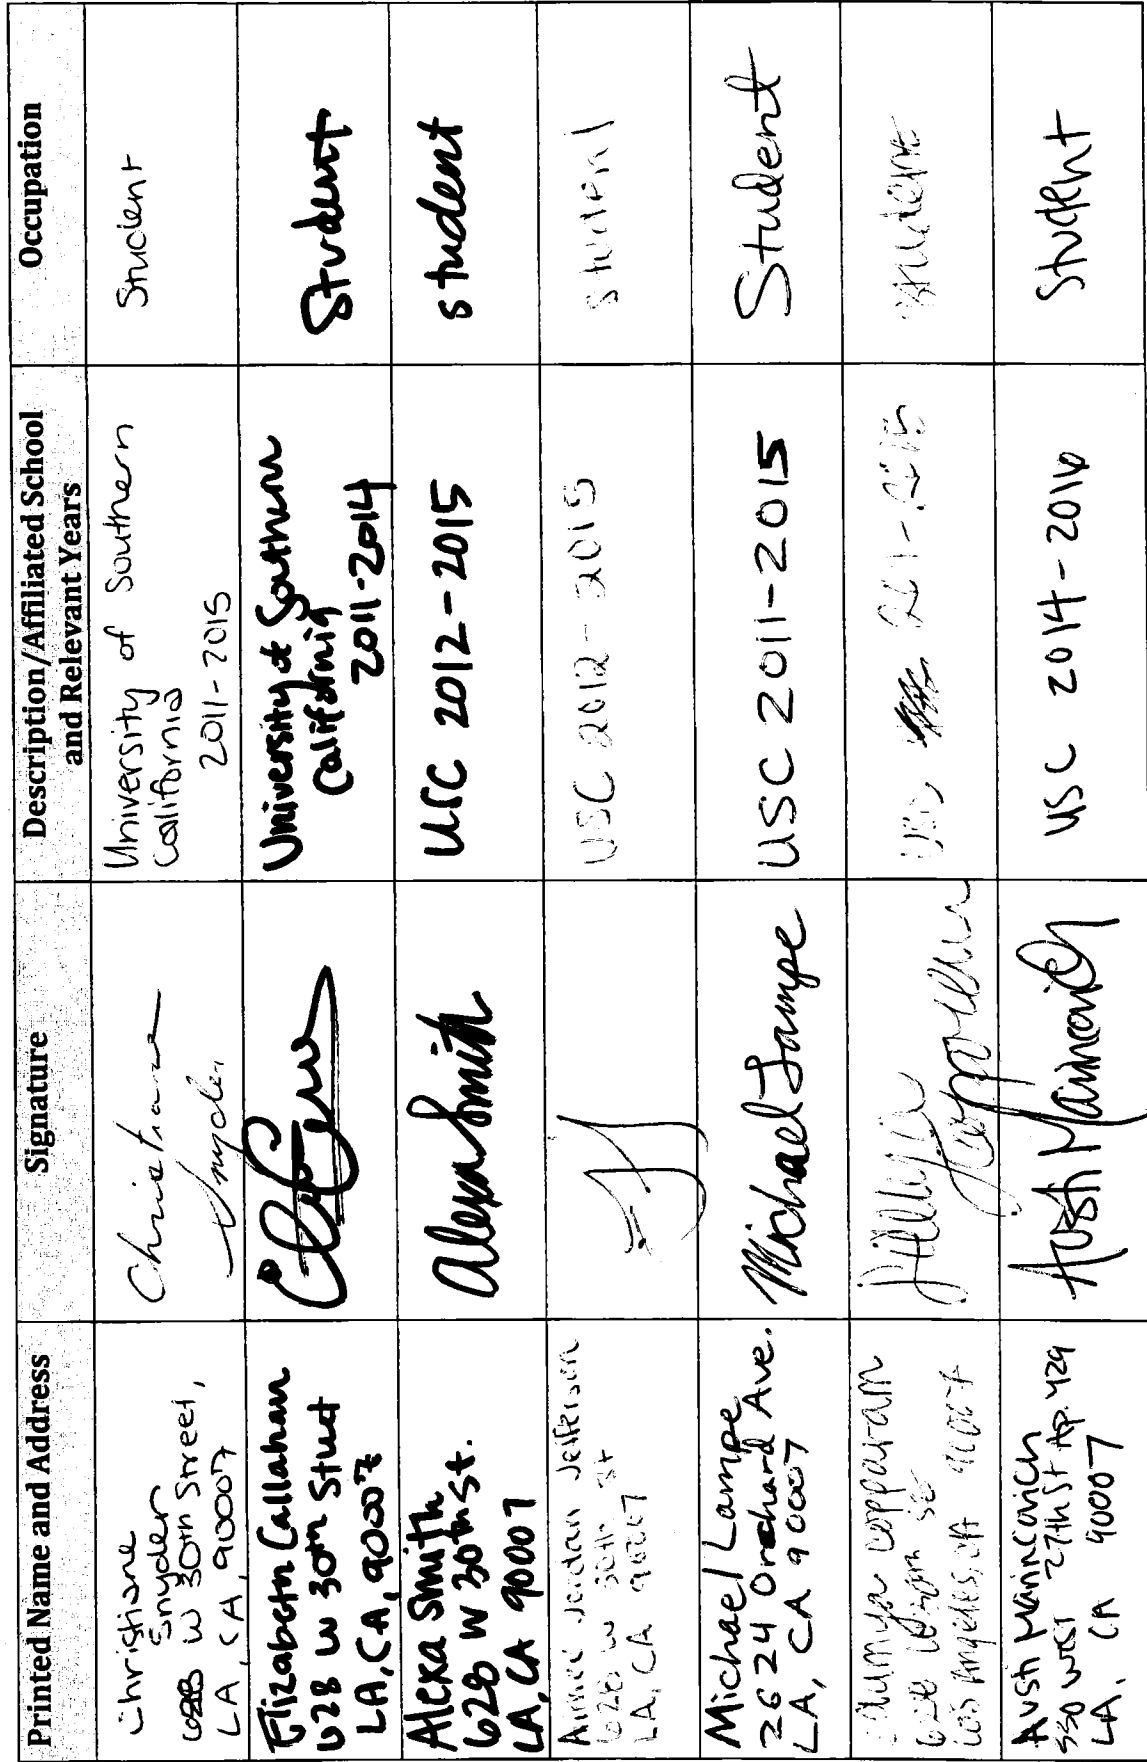 Printed Name and Address
Signature
Description/Affiliated School
and Relevant Years
Occupation
Christiane
Snyder
628 W 30th Street,
LA, CA, 90007
Christiane
Snyder
University of Southern
California
2011-2015
Student
Elizabeth Callahan
628 W 30th Street
LA, CA, 90007
University of Southern
California
2011-2014
Student
Alexa Smith
628 W 30th St.
LA, CA 90007
Alexa Smith
USC 2012-2015
student
Jordan Jefferson
628 W 30th St
LA, CA 90007
USC 2012-2015
student
Michael Lampe
2624 Orchard Ave.
LA, CA 90007
Michael Lampe
USC 2011-2015
Student
Copparam
Los Angeles, CA 90007
student
Austi Marincovich
550 West 27th St Ap. 429
LA, CA 90007
USC 2014-2016
Student